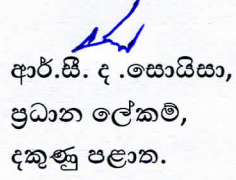 ආර්.සී. ද .සොයිසා,
ප්‍රධාන ලේකම්,
දකුණු පළාත.